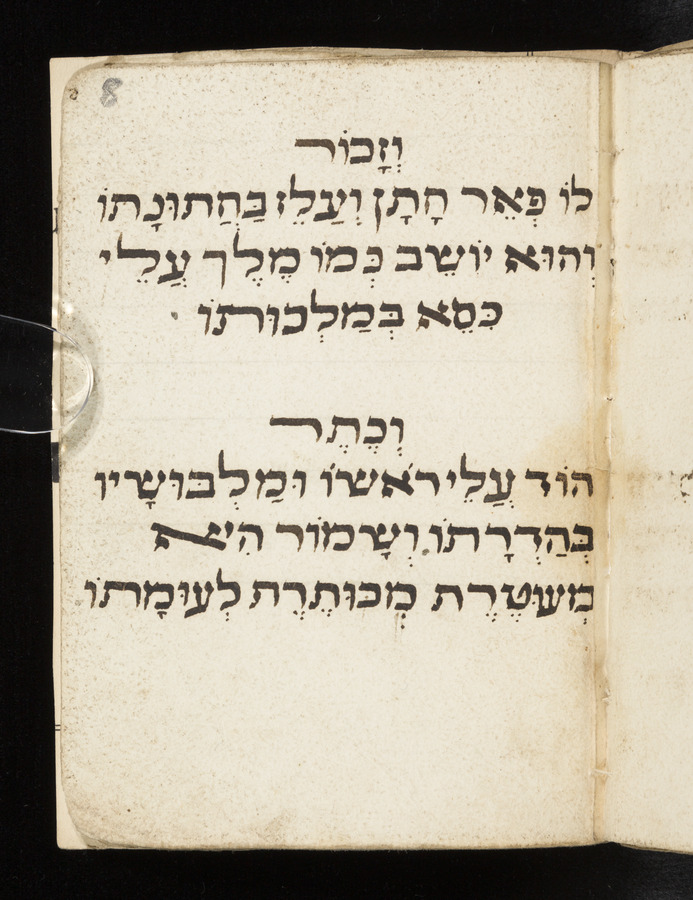 8
וְזָכוֹר
לוֹ פְּאֵר חָתָן וְעַלֵז בַּחֲתוּנָתוֹ
וְהוּא יוֹשֵב כְּמוֹ מֶלֶך עֲלֵי
כִּסֵא בְּמַלְכוּתוֹ
וְכֶתֶר
הוֹד עֲלֵי רֹאשׁוֹ וּמַלְבּוּשָיו
בְּהַדְרָתוֹ וְשָמוֹר הִיא
מְעוּטֶרֶת מְכוּתֶרֶת לְעוּמָתוֹ